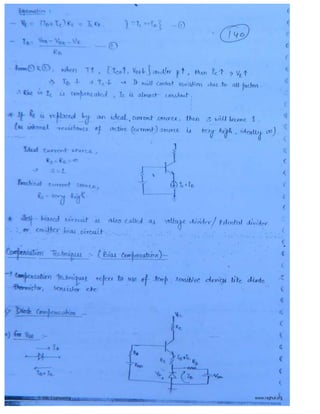 Explanation :-
- VE = (IB+IC) RE = IC RE
140
IB = VBB - VBE - VE / RB
when T↑, [ICO↑, VBE↓] and/or β↑, then IC↑ → VE↑
→ IB ↓ → IC ↓ → It will control variation due to all factors
∴ Rise in IC is compensated, IC is almost constant.
* If RE is replaced by an ideal current source, then S will become 1.
(as internal resistance of active (current) source is very high, ideally ∞)
Ideal current source,
RS = RE = ∞
→ S = 1
Practical current source,
RE = very high
* Self-biased circuit is also called as voltage divider / Potential divider
or emitter bias circuit.
Compensation Techniques :- (Bias Compensation):-
→ Compensation techniques refers to use of temp. sensitive devices like diode
thermistor, sensistor etc.
1) Diode Compensation :-
a) For VBE :-
RC
RB
www.raghul.org